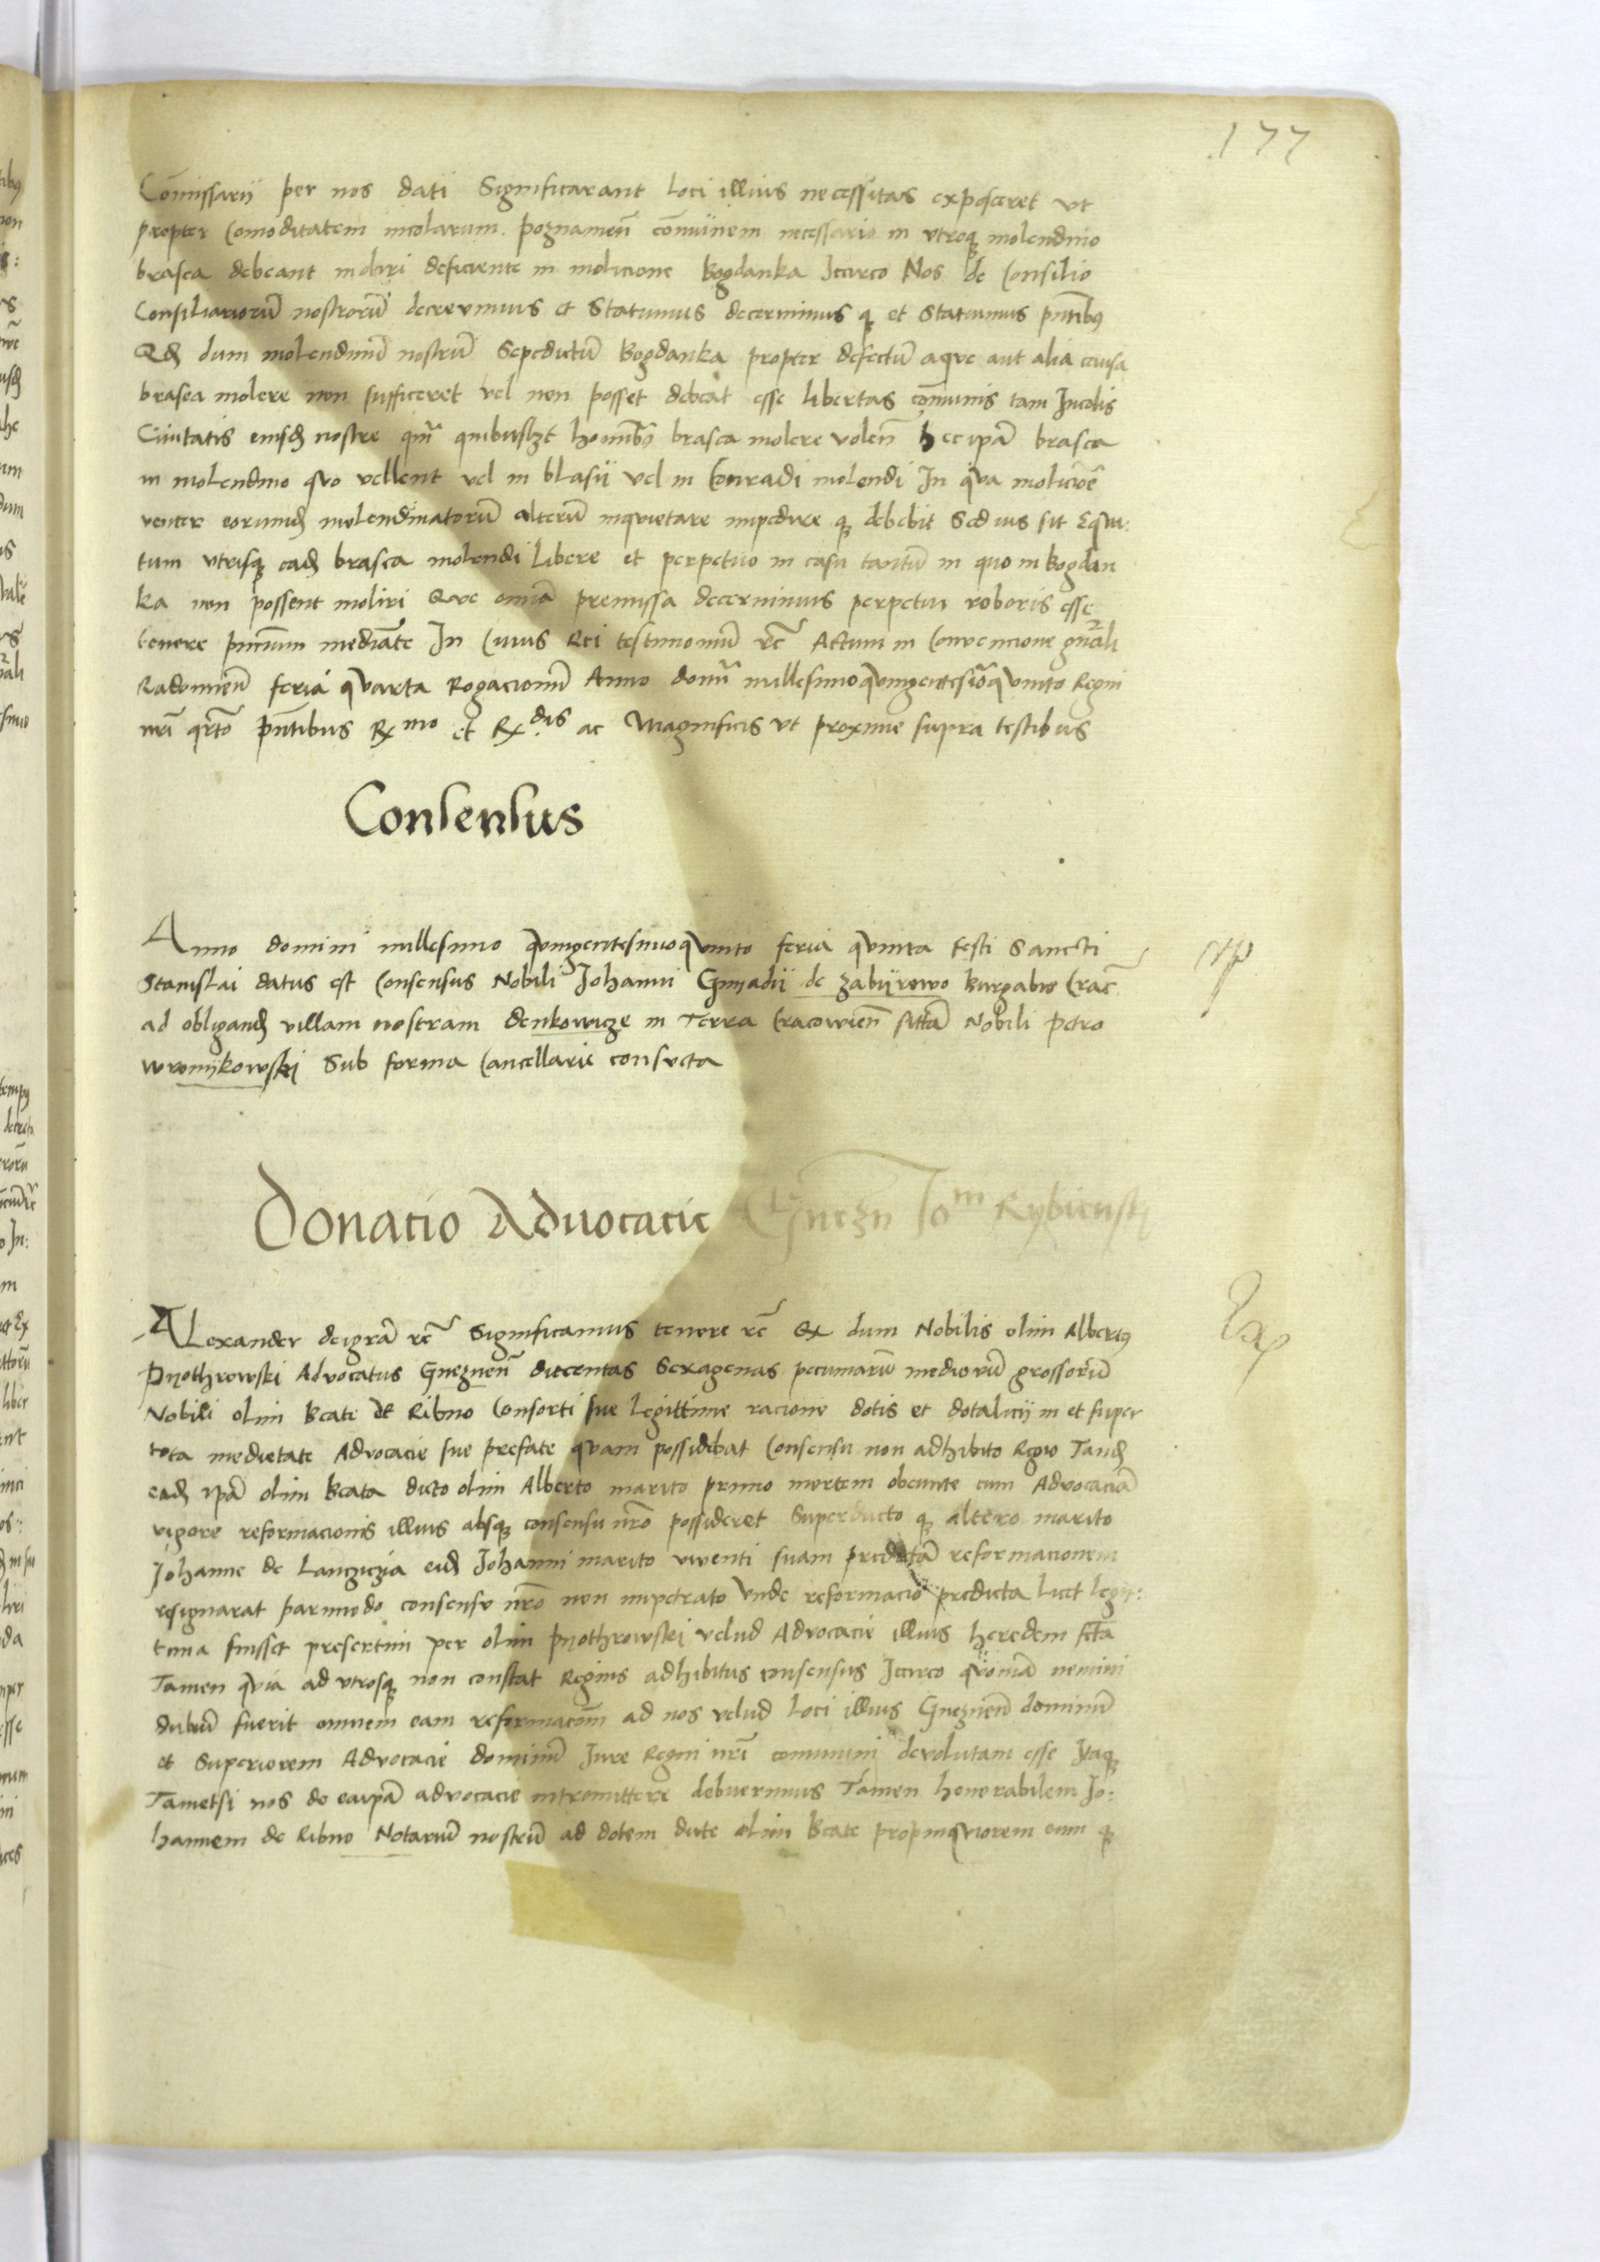 177
Comissarii per nos dati Significarant loci illius necessitas exposceret ut
propter Comoditatem incolarum poznanien̄ com̄unem necessario in utroq molendino
brasea debeant moliri deficiente in molicione Bogdanka Iccirco Nos de Consilio
Consiliariorū nostrorū decrevimus et Statuimus decernimus q et Statuimus pn̄tibus
Qd dum molendinū nostrū Sepedictū Bogdanka propter defectū aque aut alia causa
brasea molere non sufficeret vel non posset debeat esse libertas com̄unis tam Incolis
Civitatis eiusd nostre qm̄ quibuslzt hoīnibus brasea molere volen̄ hec ip̄a brasea
in molendino quo vellent vel in blasii vel in Conradi molendi In qua molicōe
neuter eorumd molendinatorū alterū inquietare impedire q debebit Sed ius sit Equi:
tum utrisq ead brasea molendi libere et perpetuo in casu tantū in quo in Bogdan
ka non possent moliri Que om̄ia premissa decernimus perpetui roboris esse
tenere pn̄cium mediāte In Cuius Rei testimoniū rc̄ Actum in Convencione gn̄ali
Radomien̄ feria quarta Rogacionū Anno domī millesimoquingentesīoquinto Regni
nr̄i qrto pn̄tibus Rmo et Rdis ac Magnificis ut proxime supra testibus
Consensus
Anno domini millesimo quingentesimoquinto feria quinta festi Sancti
Stanislai datus est Consensus Nobili Johanni Gmyadii de zabyrowo Burgabio Crac̄
ad obligand villam nostram denkowicze in Terra Cracovien̄ sitā Nobili Petro
wromykowski Sub forma Cancellarie consveta
Donacio Advocacie Gnezn Io m Rybiensky
Alexander dei grā rc̄ Significamus tenore rc̄ Qz dum Nobilis olim Albertus
Pyothrowski Advocatus Gneznen̄ ducentas Sexagenas pecuniarū mediorū grossorū
Nobili olim Beate de Ribno Consorti sue legittime racione dotis et dotalicii in et super
tota medietate Advocacie sue prefate quam possidebat Consensu non adhibito Regio Tand
ead ip̄a olim Beata dicto olim Alberto marito primo mortem obeunte cum Advocaciā
vigore reformacionis illius absq consensu nr̄o possideret Superducto q altero marito
Johanne de Lanczicia eid Johanni marito viventi suam predictā reformacionem
resignarat parimodo consensu nr̄o non impetrato Unde reformacio predicta licet legit:
tima fuisset presertim per olim pyothrowski velud Advocacie illius heredem fctā
Tamen quia ad utrosq non constat Regius adhibitus consensus Iccirco quoniā nemini
dubiū fuerit omnem eam reformacōm ad nos velud loci illius Gneznen̄ dominū
et Superiorem Advocacie dominū Jure Regni nr̄i comuni devolutam esse Itaq
Tametsi nos de ea ip̄a advocacie intromittere debuerimus Tamen honorabilem Jo:
hannem de Ribno Notariū nostrū ad dotem dicte olim Beate propinquiorem eum q